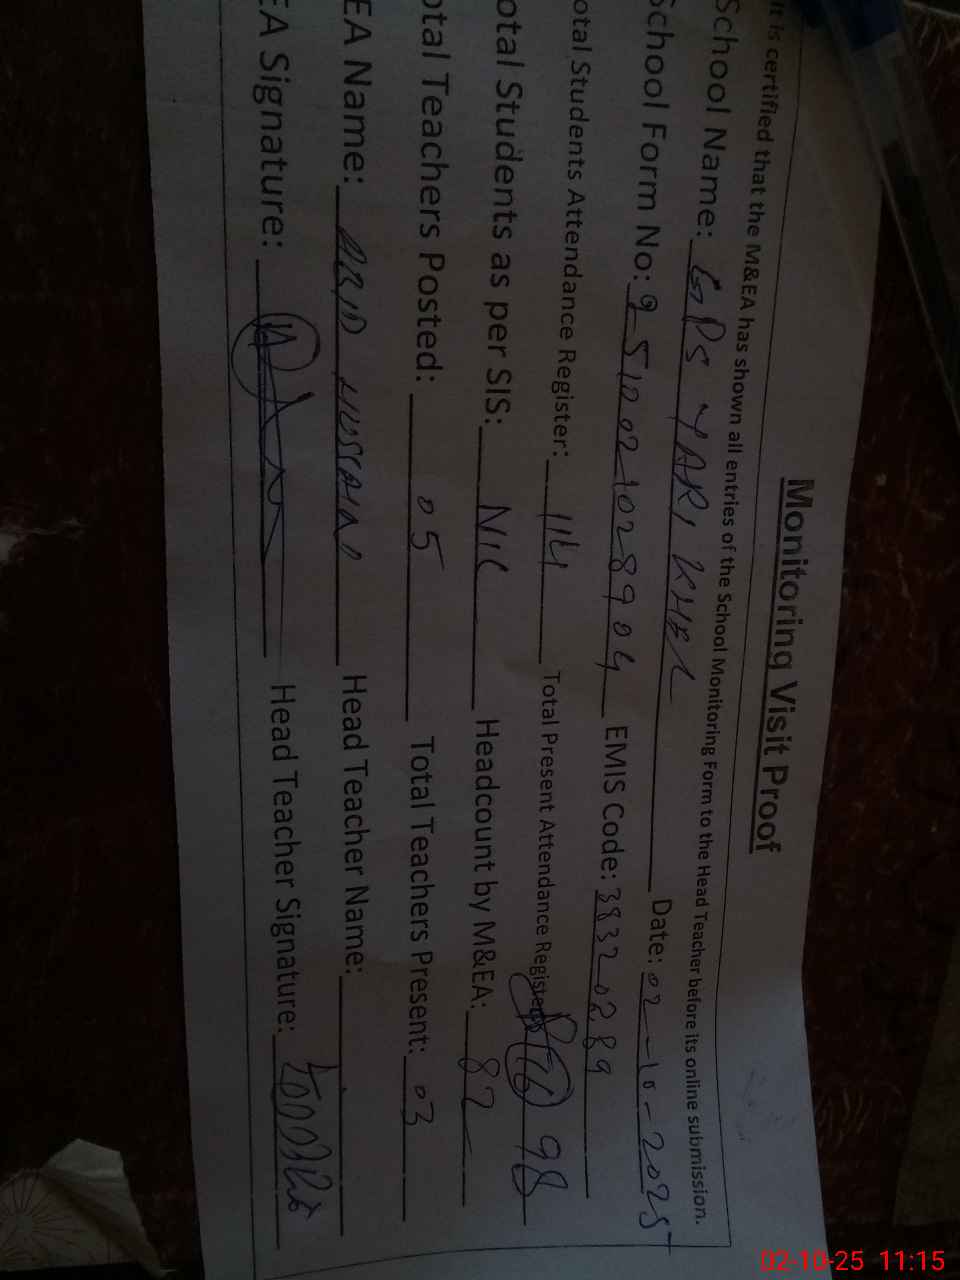 Monitoring Visit Proof
It is certified that the M&EA has shown all entries of the School Monitoring Form to the Head Teacher before its online submission.
School Name: GPS YARI KHEL Date: 02-10-2025
School Form No: 2510021028904 EMIS Code: 38320289
otal Students Attendance Register: 114 Total Present Attendance Register: 98
otal Students as per SIS: NIL Headcount by M&EA: 82
otal Teachers Posted: 05 Total Teachers Present: 03
EA Name: ABID HUSSAIN Head Teacher Name:
EA Signature: Head Teacher Signature:
02-10-25 11:15